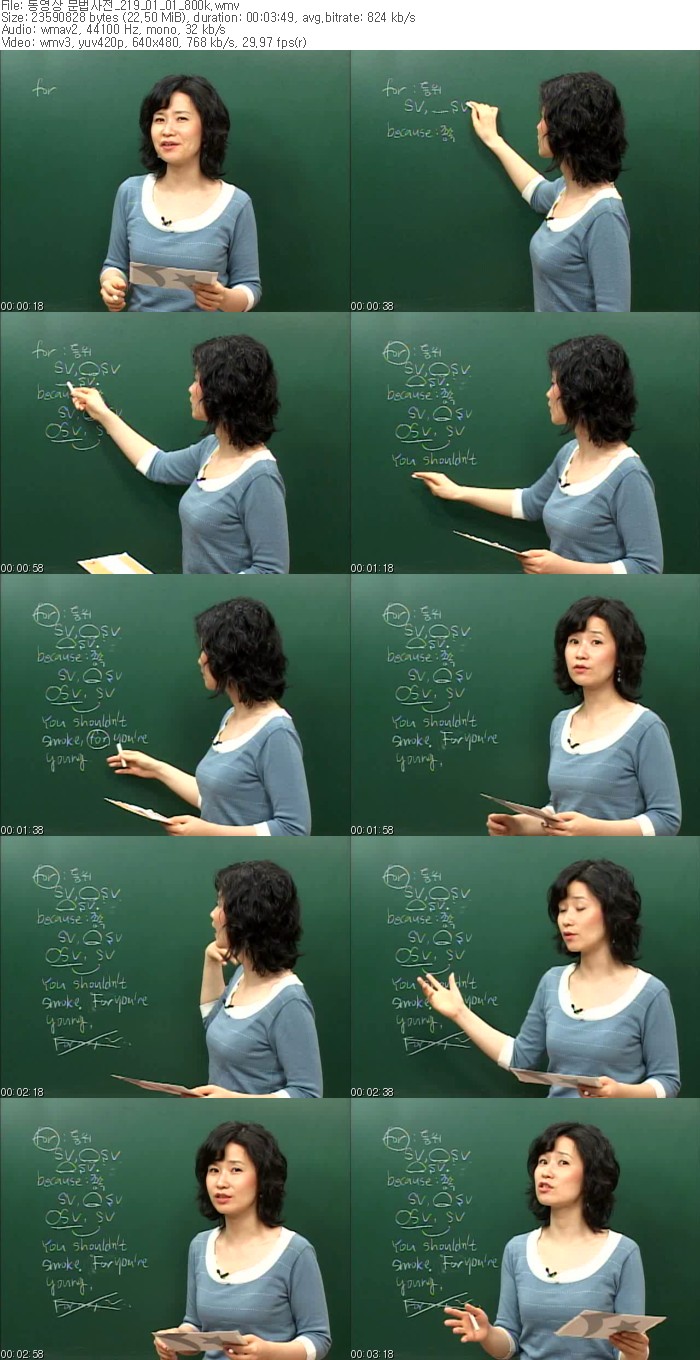 File: 동영상 문법사전_219_01_01_800k.wmv
Size: 23590828 bytes (22.50 MiB), duration: 00:03:49, avg.bitrate: 824 kb/s
Audio: wmav2, 44100 Hz, mono, 32 kb/s
Video: wmv3, yuv420p, 640x480, 768 kb/s, 29.97 fps(r)
for
00:00:18
for : 등위
SV, SV
because :
00:00:38
for : 등위
SV, SV
SV.
SV,
SV,
00:00:58
for : 등위
SV, SV
SV.
because :
SV, SV
SV, SV
You shouldn't
00:01:18
for : 등위
SV, SV
SV.
because :
SV, SV
SV, SV
You shouldn't
smoke, for you're
young.
00:01:38
for : 등위
SV, SV
SV.
because :
SV, SV
SV, SV
You shouldn't
smoke. For you're
young.
00:01:58
for : 등위
SV, SV
SV.
because :
SV, SV
SV, SV
You shouldn't
smoke. For you're
young.
00:02:18
for : 등위
SV, SV
SV.
because :
SV, SV
SV, SV
You shouldn't
smoke. you're
young.
00:02:38
for : 등위
SV, SV
SV.
because :
SV, SV
SV, SV
You shouldn't
smoke. For you're
young.
00:02:58
for : 등위
SV, SV
SV.
because :
SV, SV
SV, SV
You shouldn't
smoke. For you're
young.
00:03:18